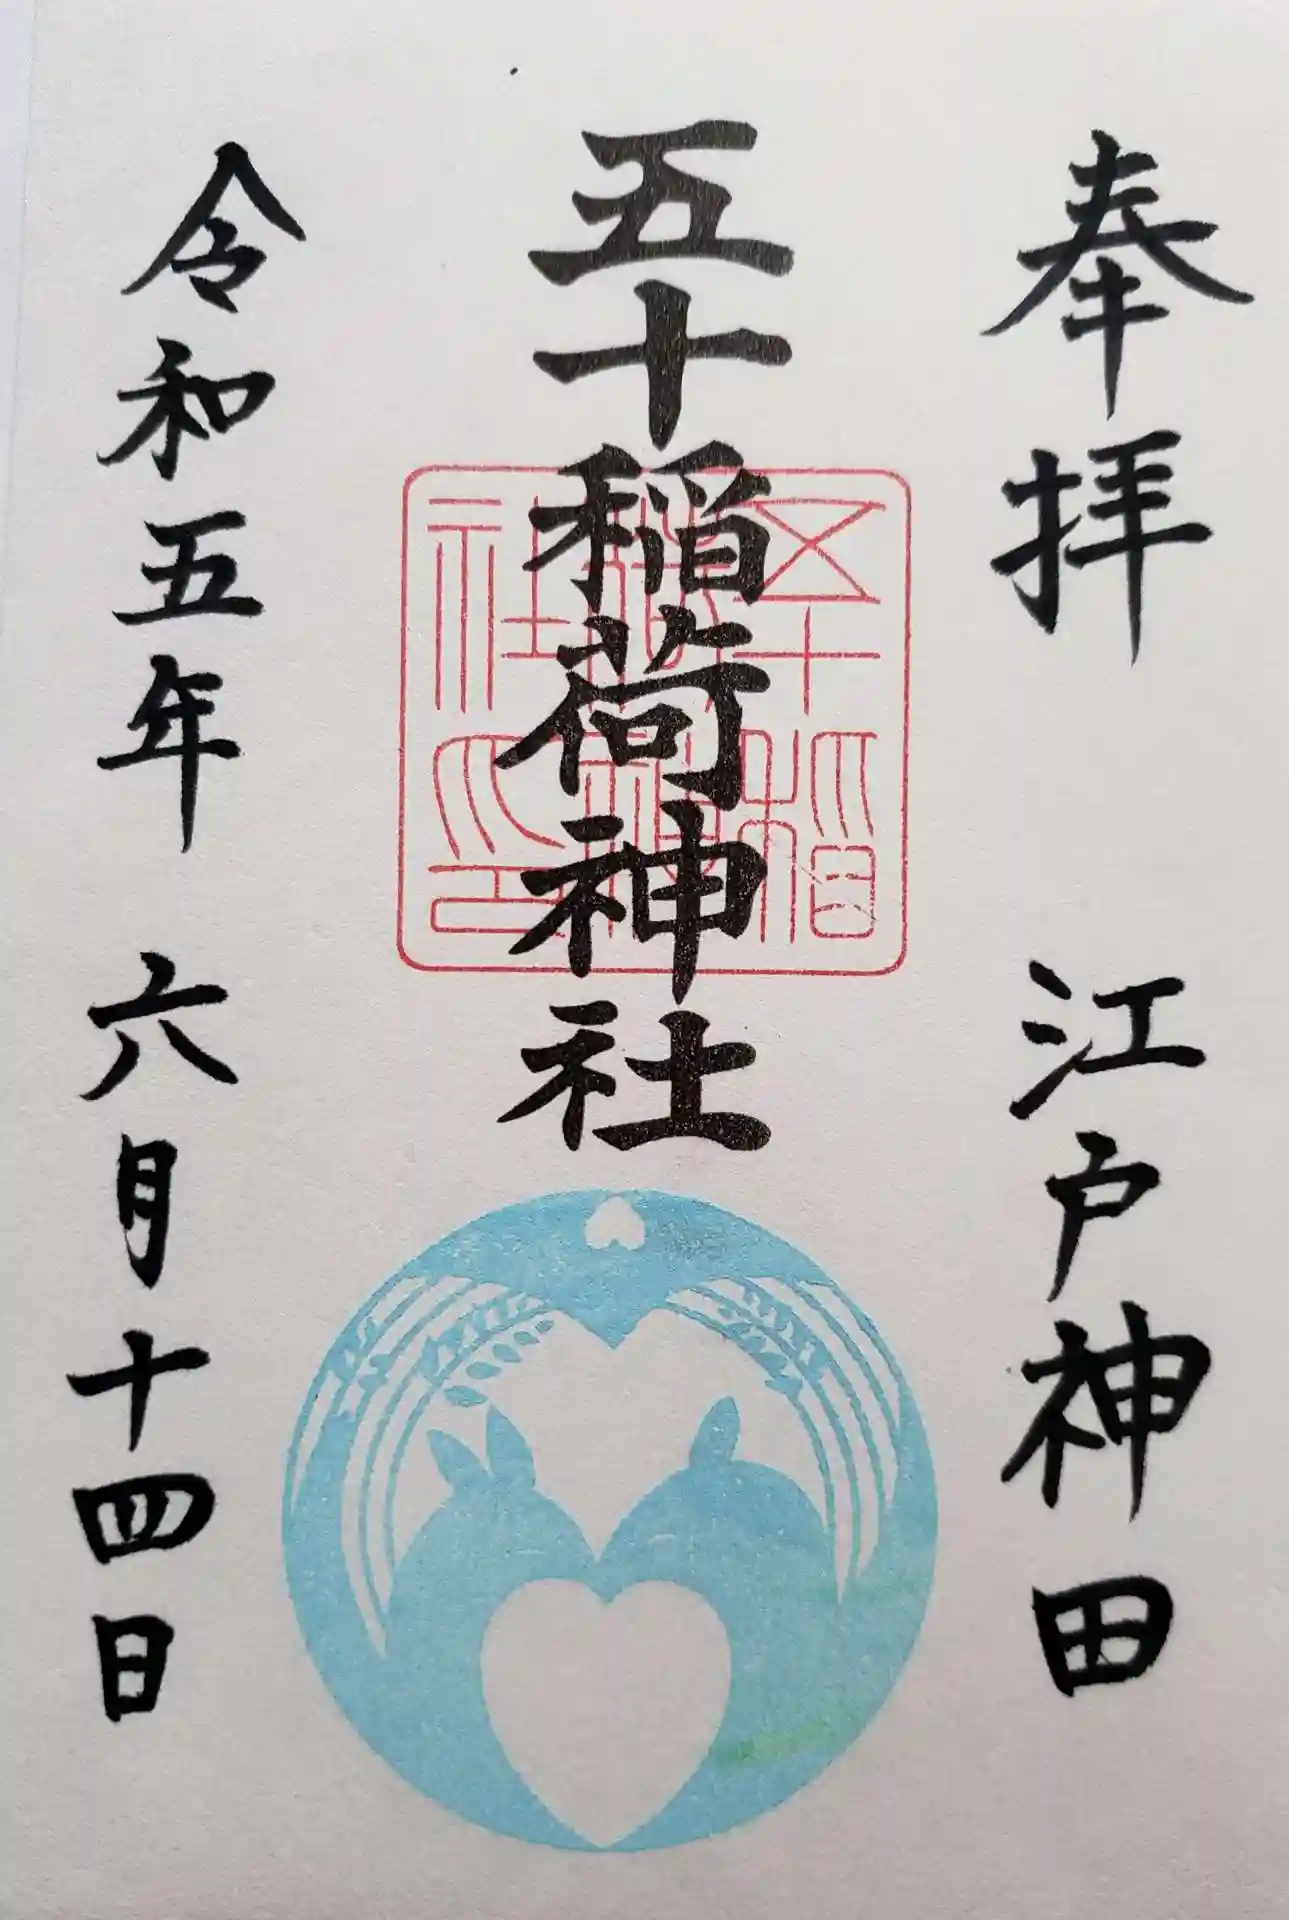 奉拝 江戸神田
五十稲荷神社
五十稲荷神社印
令和五年 六月十四日